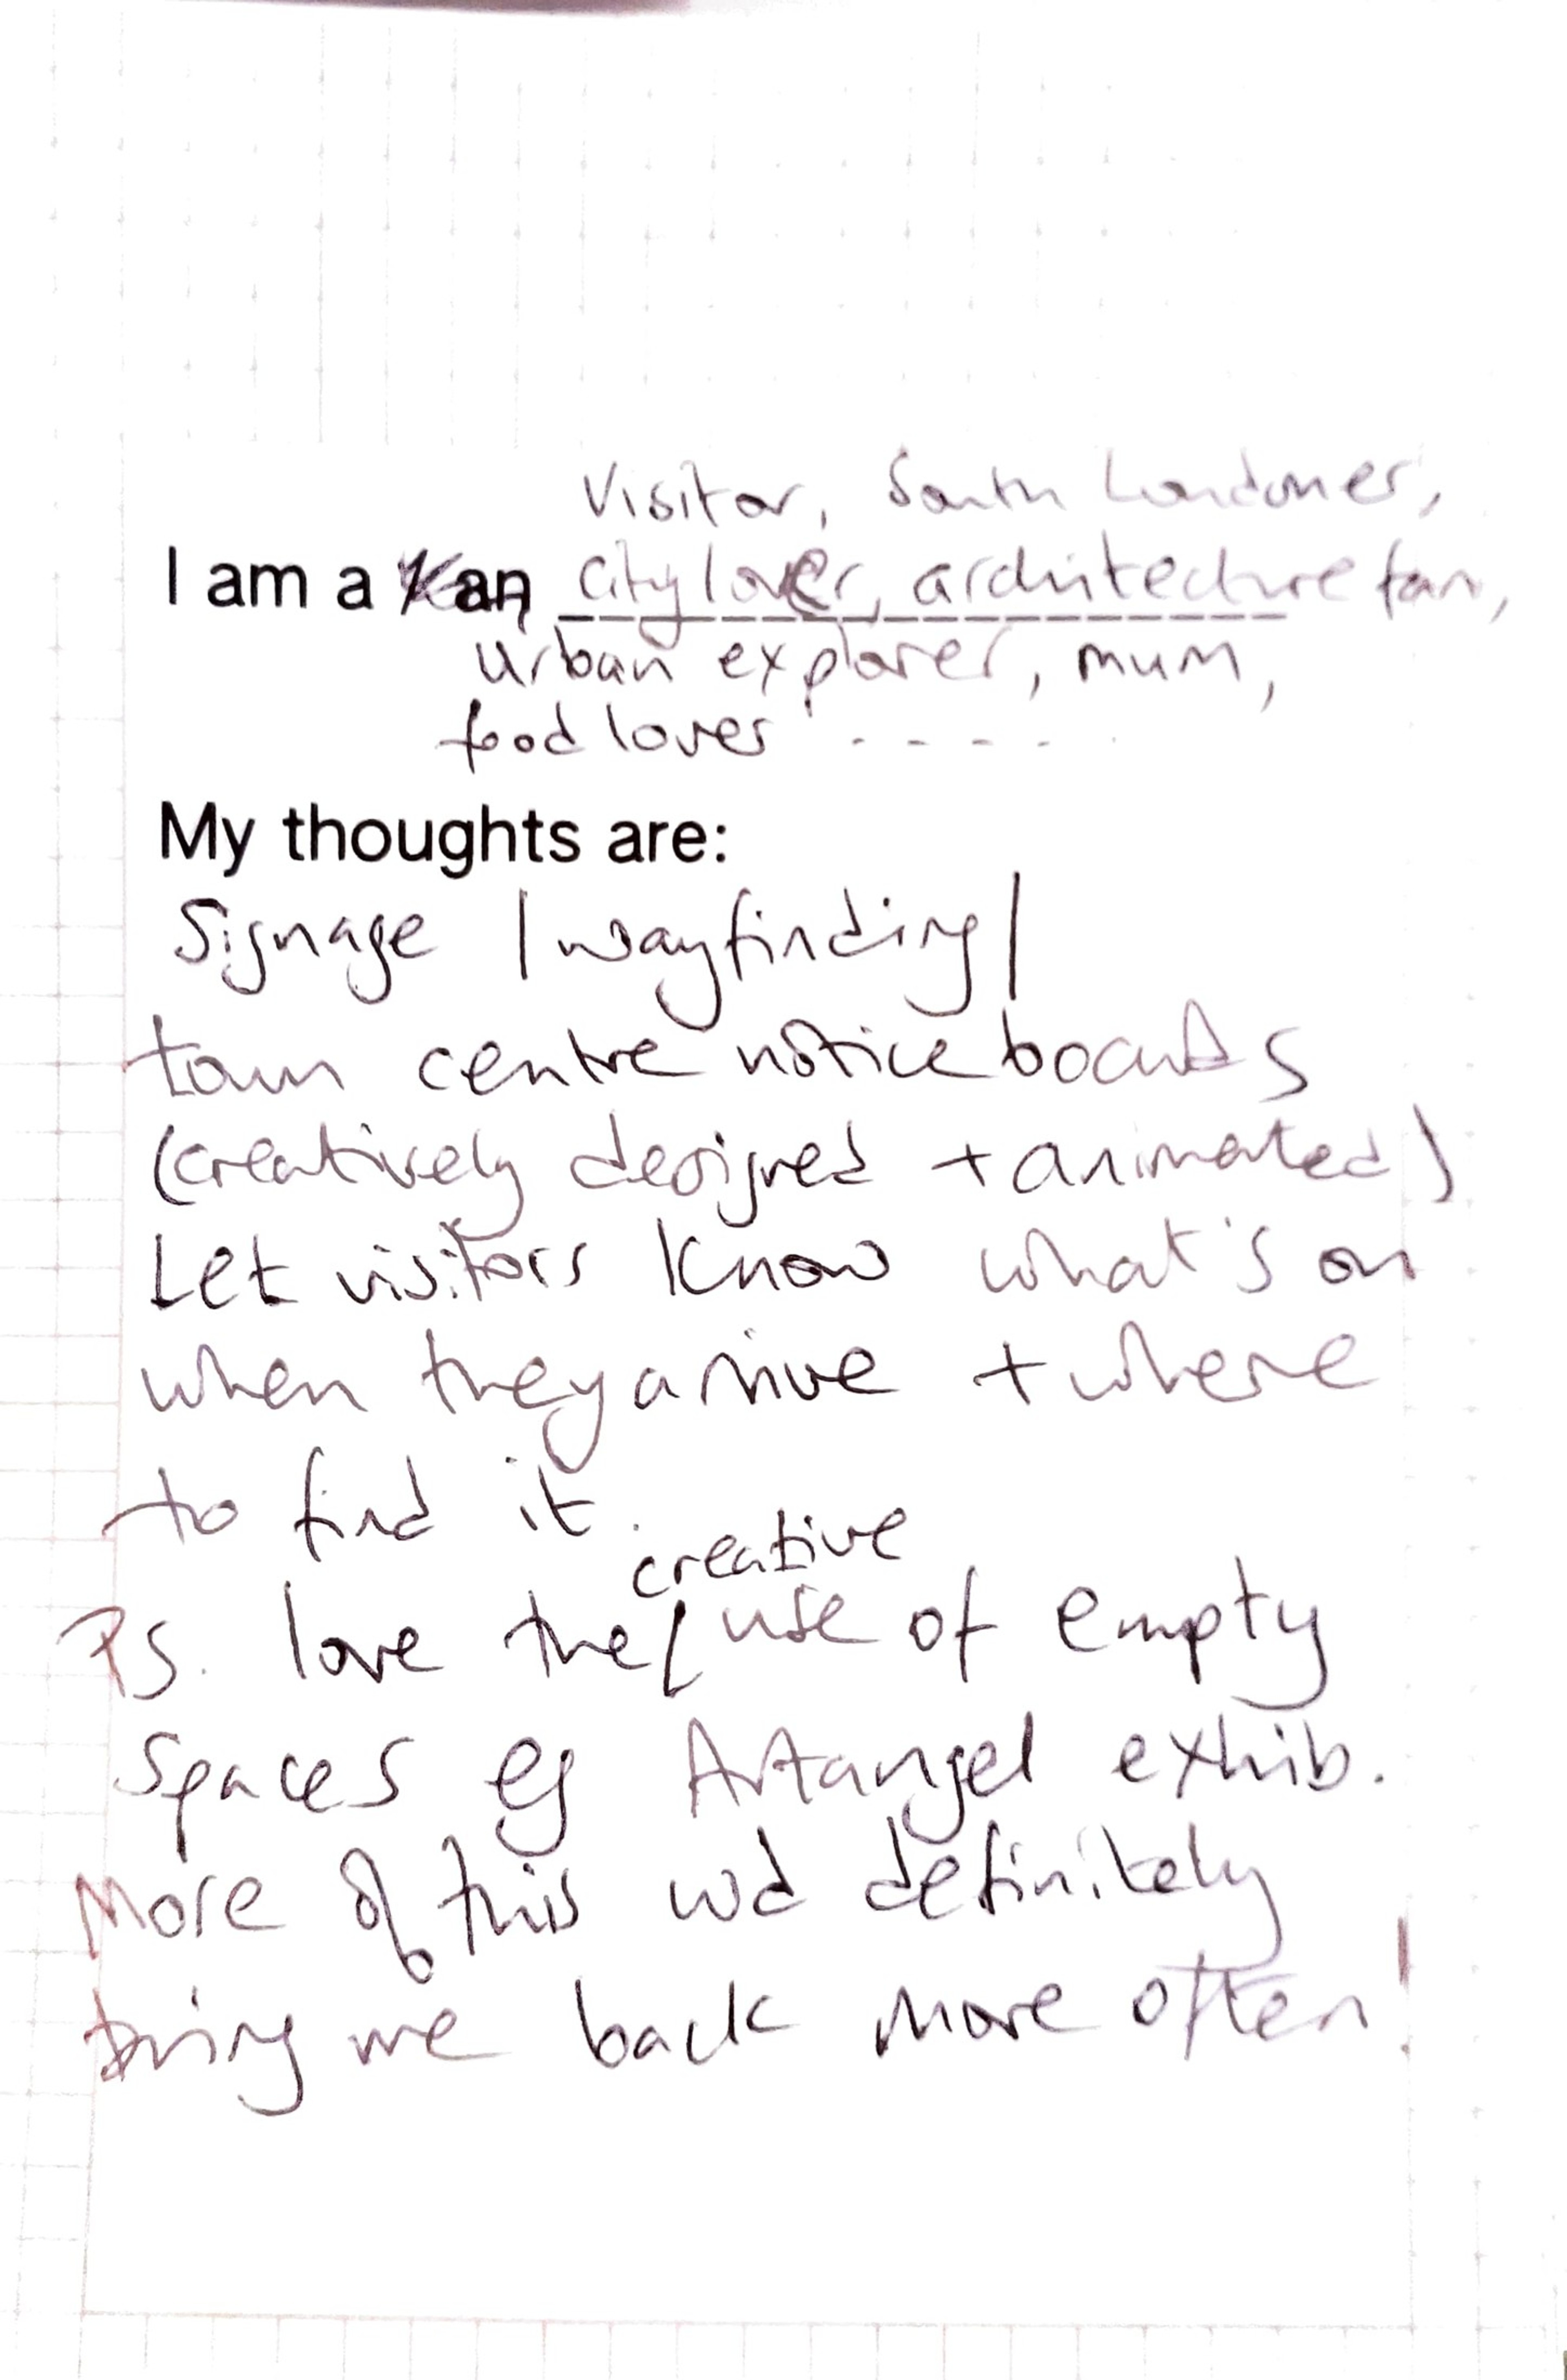 Visitor, South Londoner,
I am a / an city lover, architecture fan,
urban explorer, mum,
food lover - - - - -
My thoughts are:
Signage / wayfinding /
town centre notice boards
(creatively designed + animated)
Let visitors know what's on
when they arrive + where
to find it.
creative
PS. love the use of empty
spaces eg Artangel exhib.
More of this wd definitely
bring me back more often!